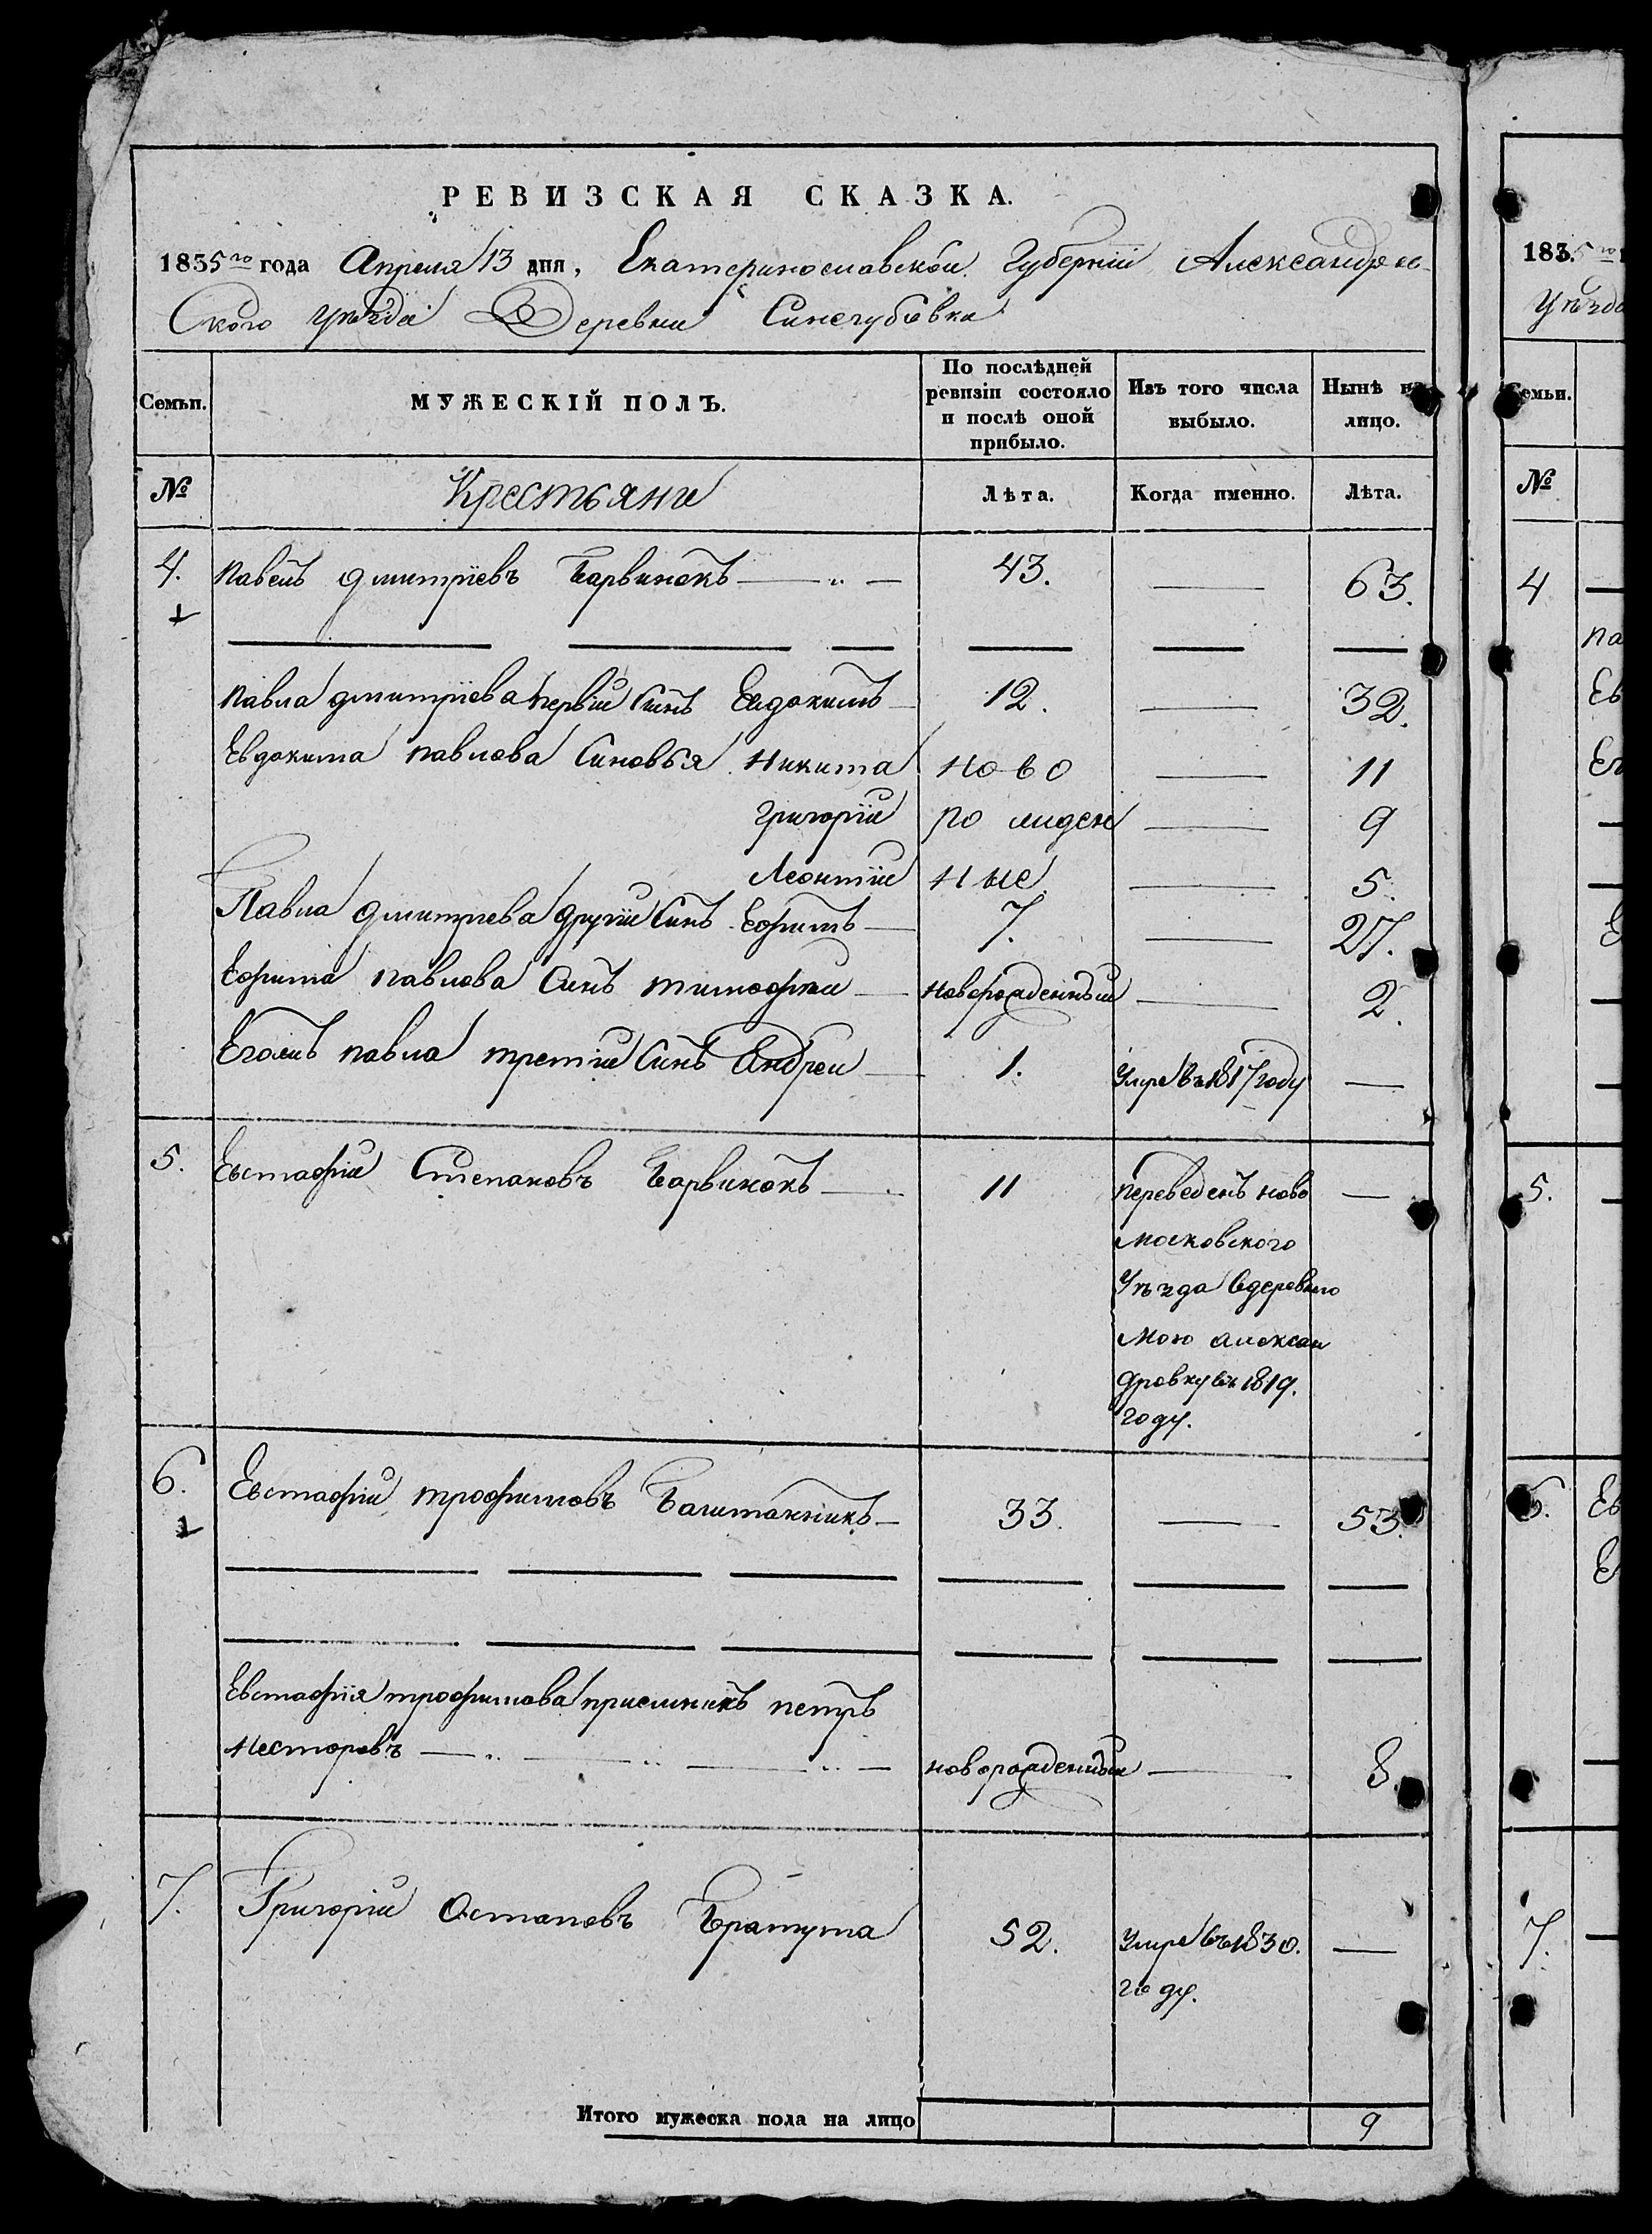 РЕВИЗСКАЯ СКАЗКА.
1835го года Апреля 13 дня, Екатеринославской Губернии Александров-
Ского уезда Деревни Синегубовки
Семьи. МУЖЕСКІЙ ПОЛЪ. По послѣдней ревизіи состояло и послѣ оной прибыло. Изъ того числа выбыло. Нынѣ на лицо.
№ Крестьяне Лѣта. Когда именно. Лѣта.
4. Павелъ дмитріевъ Барвинокъ 43. 63.
Павла дмитріева первій Синъ Евдокимъ 12. 32.
Евдокима павлова Синовья Никита ново 11
Григорій ро жден 9
Леонтій ные 5.
Павла дмитріева другій Синъ Ефимъ 7. 27.
Ефима павлова Синъ тимофей новорожденный 2.
Егожъ павла третій Синъ Андрей 1. Умре въ 1817 году
5. Евстафій Степановъ Барвинокъ 11 переведенъ ново
московского
Уѣзда Вдеревню
мою алексан
дровку въ 1819.
году.
6. Евстафій трофимовъ Баштанникъ 33. 53.
Евстафія трофимова приемишъ петръ
Несторовъ новорожденный 8.
7. Григорій Остаповъ Братута 52. Умре въ 1830.
году.
Итого мужеска пола на лицо 9
183.5го
Уѣзда
Семьи.
№
4
па
Ев
Ег
5.
6. Ев
Е
7.